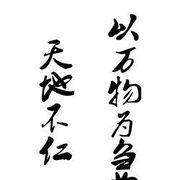 天地不仁
以万物为刍